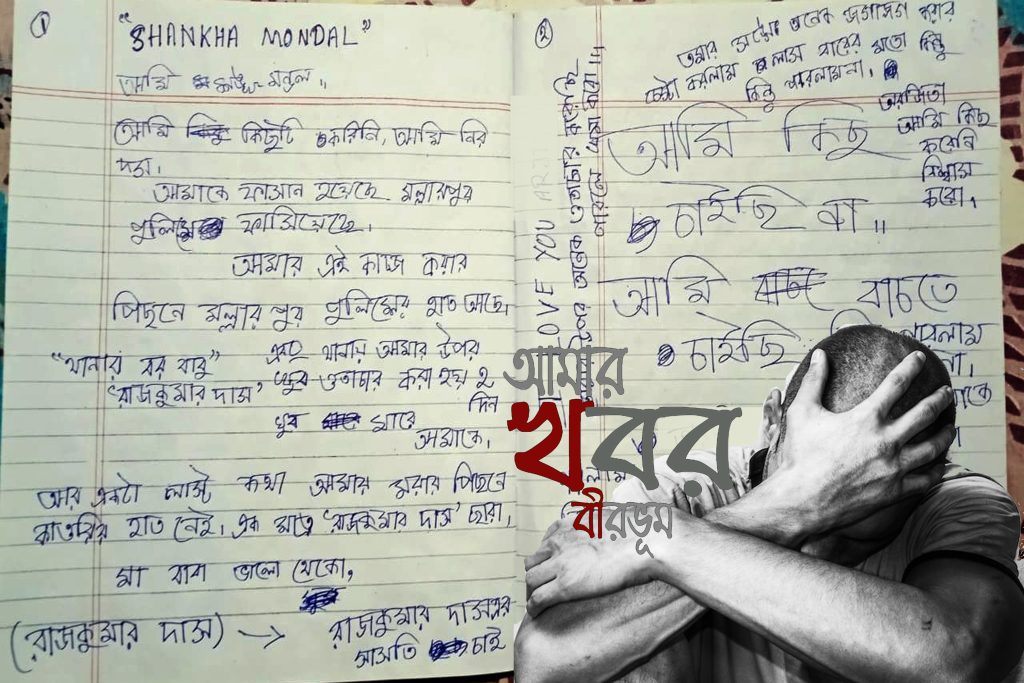 ①
"SHANKHA MONDAL"
আমি মন্ডল।।
আমি কিছুই করিনি, আমি নির
দোষ।
আমাকে ফাসান হয়েছে মল্লারপুর
পুলিশে ফাসিয়েছে।
আমার এই কাজ করার
পিছনে মল্লারপুর পুলিশের হাত আছে।
"থানার বর বাবু"
'রাজকুমার দাস'
এবং থানায় আমার উপর
অতাচার করা হয় ২
দিন
খুব মারে
আমাকে।
আর একটা লাস্ট কথা আমার মরার পিছনে
কাওরির হাত নেই। এক মাত্র 'রাজকুমার দাস' ছারা।
মা বাবা ভালো থেকো,
(রাজকুমার দাস) → রাজকুমার দাসএর
সাসতি চাই
②
তমার সঙ্গে অনেক জগাজগ করার
চেষ্টা করলাম লাস্ট বারের মতো কিন্তু
কিন্তু পারলাম না।
আমি কিছু
করেনি
বিশ্বাস
করো।
আমি কিছু
চাইছি না।।
আমি বাচতে
চাইছি
পারলাম
I LOVE YOU
অনেক অতাচার করেছি
পারলে ক্ষমা করো!!!
আমার
খবর
বীরভূম